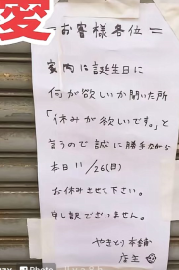 愛
=お客様各位=
家内に誕生日に
何が欲しいか聞いた所
「休みが欲しいです。」と
言うので誠に勝手ながら
本日11/26(日)
お休みさせて下さい。
申し訳ございません。
やきとり本舗
店主